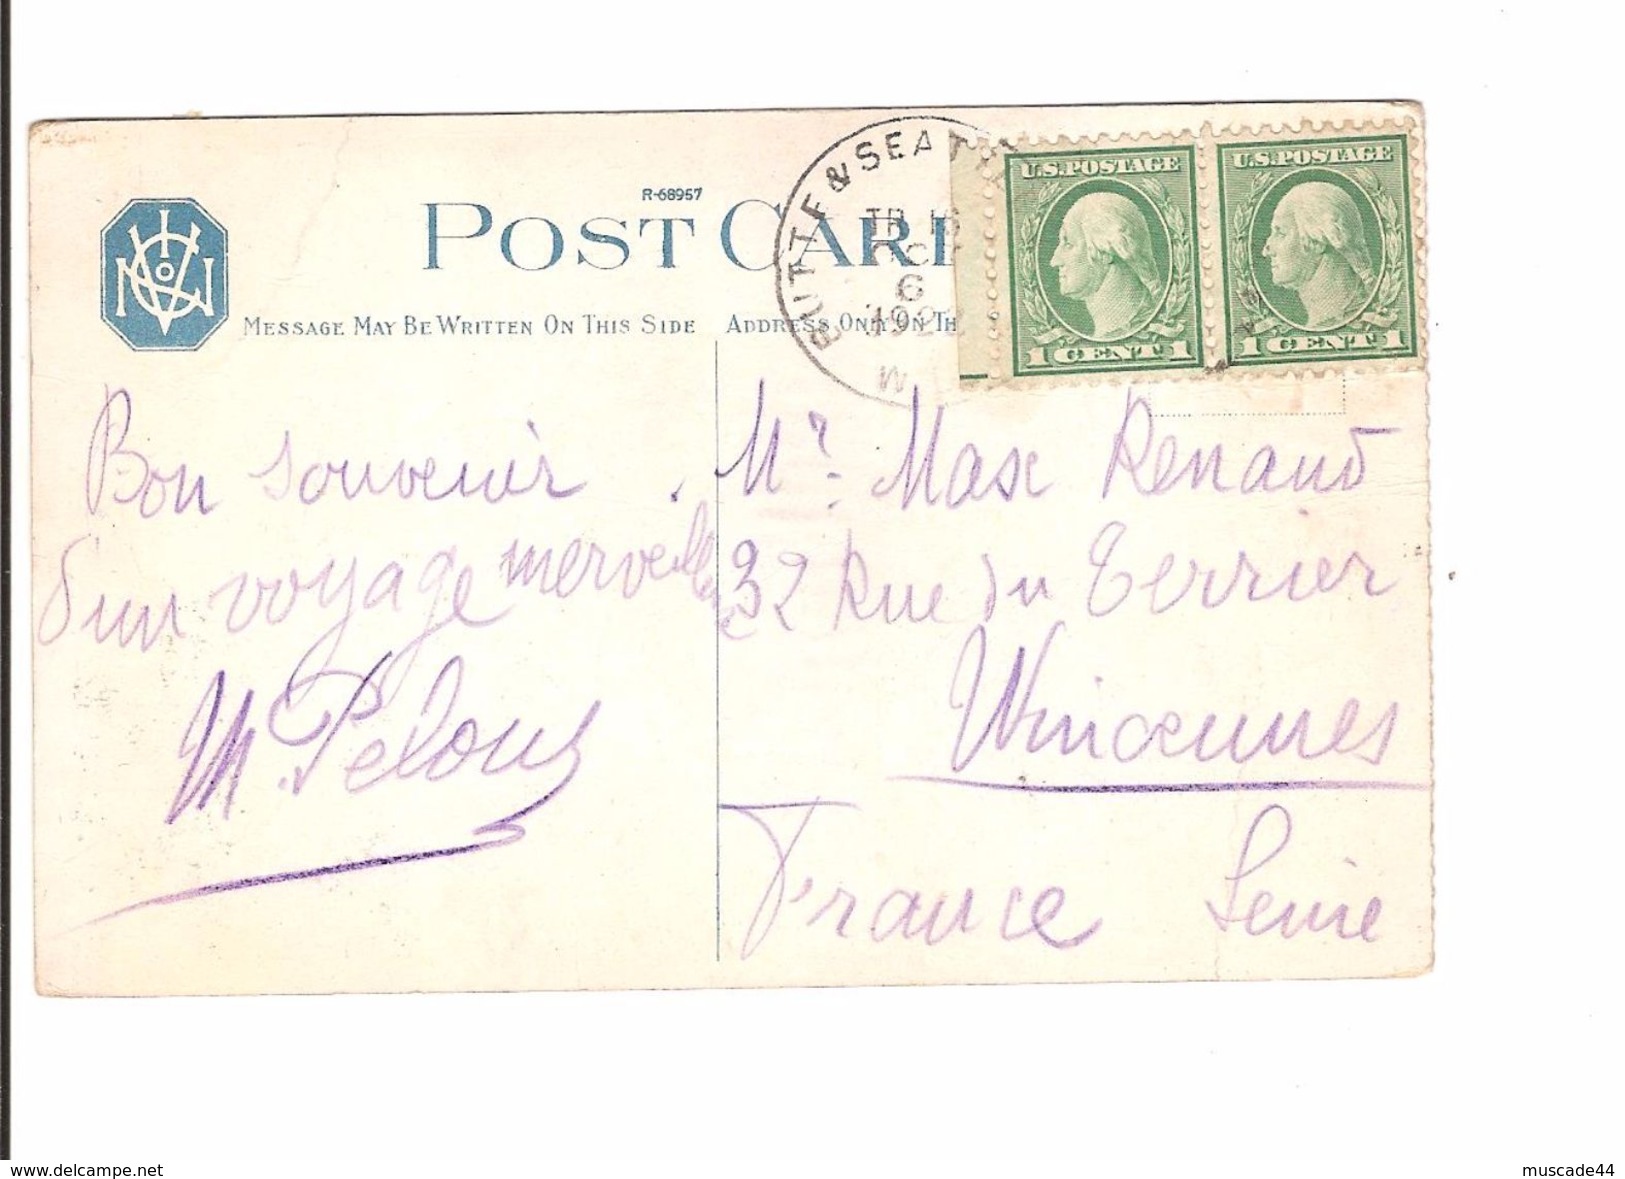 R-68957
POST CAR
MESSAGE MAY BE WRITTEN ON THIS SIDE
ADDRESS ONLY ON TH
BUTTE & SEAT
TR 16
6
192
W
U.S. POSTAGE
1 CENT 1
U.S. POSTAGE
1 CENT 1
Bon souvenir
d'un voyage merveilleux
M. Pelous
Mr. Max Renaud
32 Rue du Terrier
Vincennes
France Seine
www.delcampe.net
muscade44